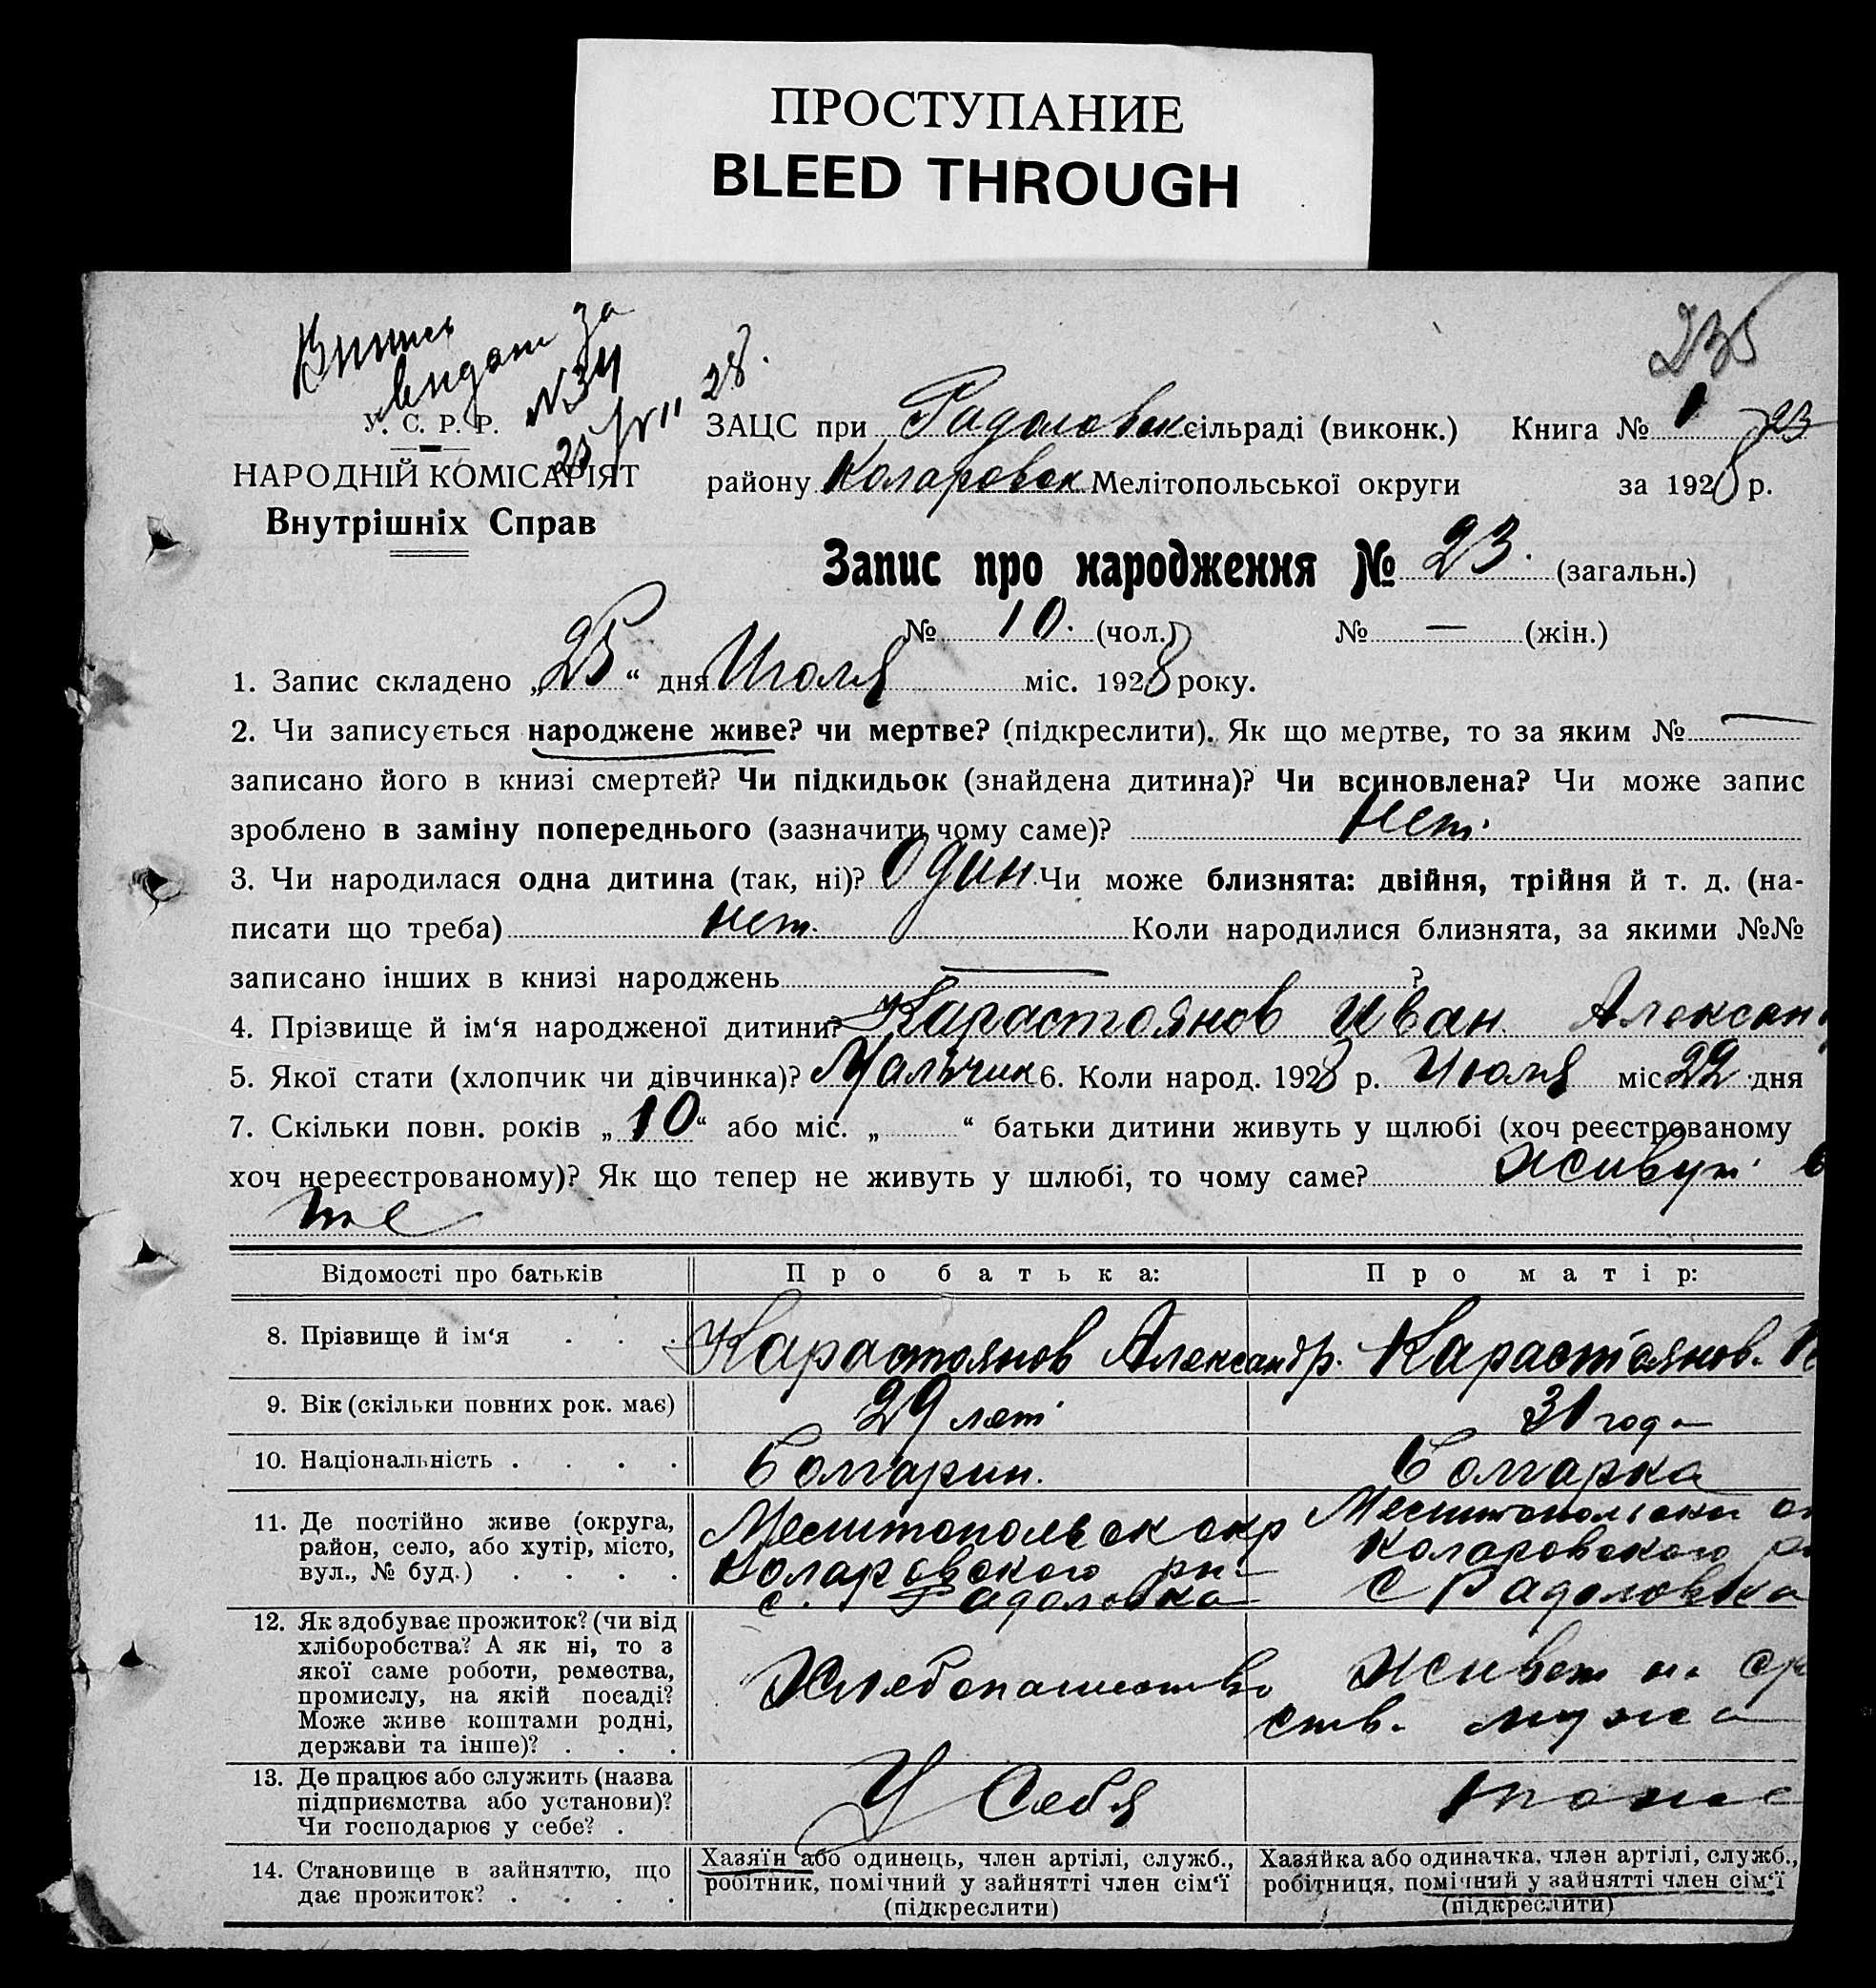 ПРОСТУПАНИЕ
BLEED THROUGH
235
Випись
видом за
N 34
25/VII 28.
У. С. Р. Р.
НАРОДНІЙ КОМІСАРІЯТ
Внутрішніх Справ
ЗАЦС при Радоловск сільраді (виконк.) Книга № 1 23
району Коларовск Мелітопольської округи за 1928 р.
Запис про народження № 23. (загальн.)
№ 10. (чол.) № — (жін.)
1. Запис складено „25“ дня Июля міс. 1928 року.
2. Чи записується народжене живе? чи мертве? (підкреслити). Як що мертве, то за яким № —
записано його в книзі смертей? Чи підкидьок (знайдена дитина)? Чи всиновлена? Чи може запис
зроблено в заміну попереднього (зазначити чому саме)? нет.
3. Чи народилася одна дитина (так, ні)? Один. Чи може близнята: двійня, трійня й т. д. (на-
писати що треба) нет. Коли народилися близнята, за якими №№
записано інших в книзі народжень — ?
4. Прізвище й ім‘я народженої дитини? Карастоянов Иван Алексан
5. Якої стати (хлопчик чи дівчинка)? Мальчик 6. Коли народ. 1928 р. Июля міс. 22 дня
7. Скільки повн. років „10“ або міс. „ “ батьки дитини живуть у шлюбі (хоч реєстрованому
хоч нереєстрованому)? Як що тепер не живуть у шлюбі, то чому саме? живут в
Відомості про батьків Про батька: Про матір:
8. Прізвище й ім‘я . . . Карастоянов Александр. Карастоянов.
9. Вік (скільки повних рок. має) 29 лет 31 года
10. Національність . . . . Болгарин. Болгарка
11. Де постійно живе (округа, район, село, або хутір, місто, вул., № буд.) . . . .
Мелитопольск окр
Коларовского рн-
с. Радоловка
Мелитопольски ок
Коларовского р
с Радоловка
12. Як здобуває прожиток? (чи від хліборобства? А як ні, то з якої саме роботи, ремества, промислу, на якій посаді? Може живе коштами родні, держави та інше)? . . .
Хлебопашество
Живет на ср
ств. мужа
13. Де працює або служить (назва підприємства або установи)? Чи господарює у себе? .
У Себя
тоже
14. Становище в зайняттю, що дає прожиток? . . . .
Хазяїн або одинець, член артілі, служб., робітник, помічний у зайнятті член сім‘ї (підкреслити)
Хазяйка або одиначка, член артілі, служб., робітниця, помічний у зайнятті член сім‘ї (підкреслити)